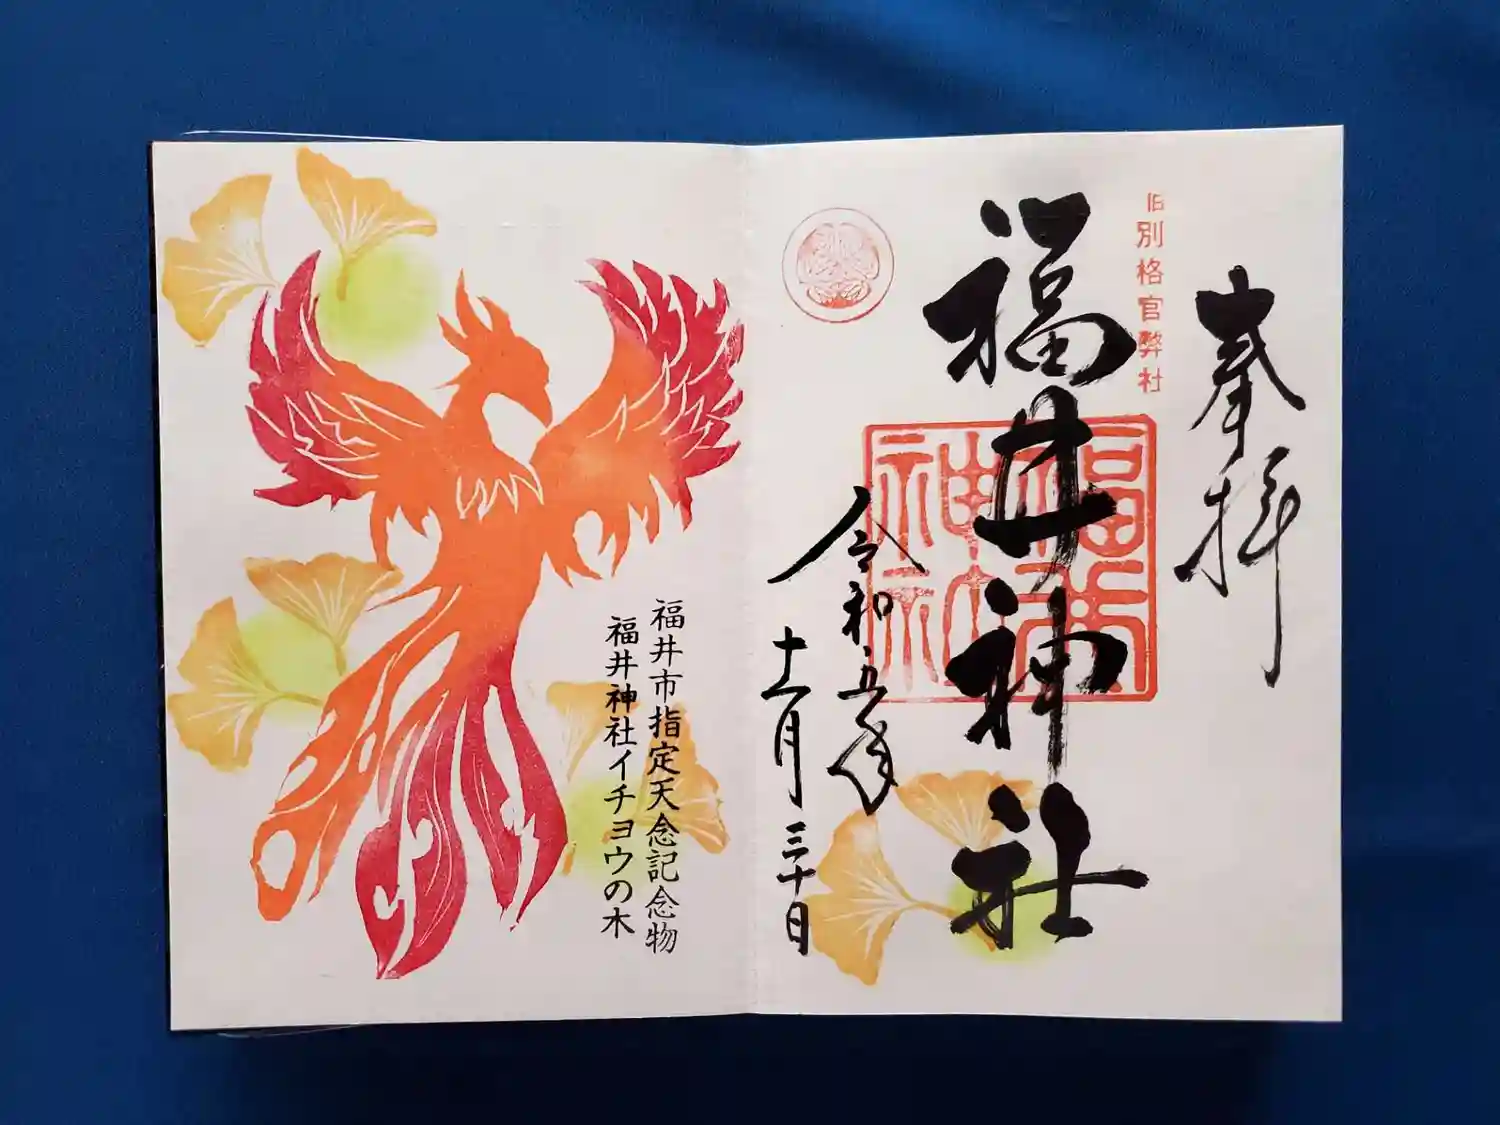 奉拝
旧別格官弊社
福井神社
福井神社
令和五年
十一月三十日
福井市指定天念記念物
福井神社イチョウの木